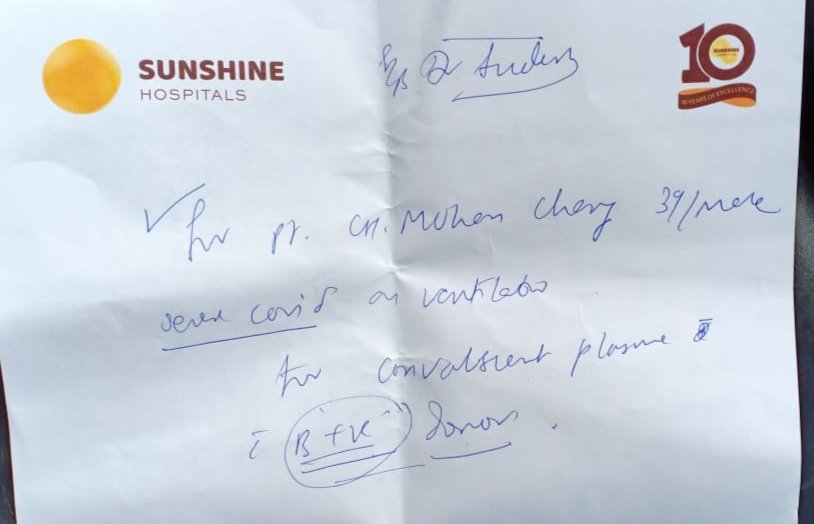 SUNSHINE
HOSPITALS
10
SUNSHINE
10 YEARS OF EXCELLENCE
Dr
for pt. CH. Mohan Chary 39/male
severe covid on ventilator
for convalscent plasma
"B +ve" Donor.